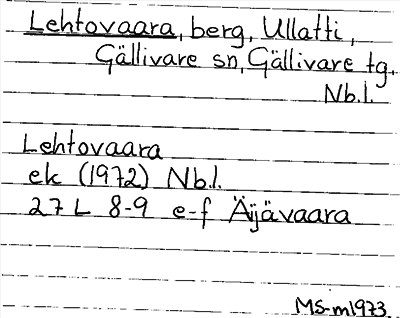 Lehtovaara, berg, Ullatti,
Gällivare sn, Gällivare tg.
Nb.l.
Lehtovaara
ek (1972) Nb.l.
27 L 8-9 e-f Äijävaara
MS-m1973